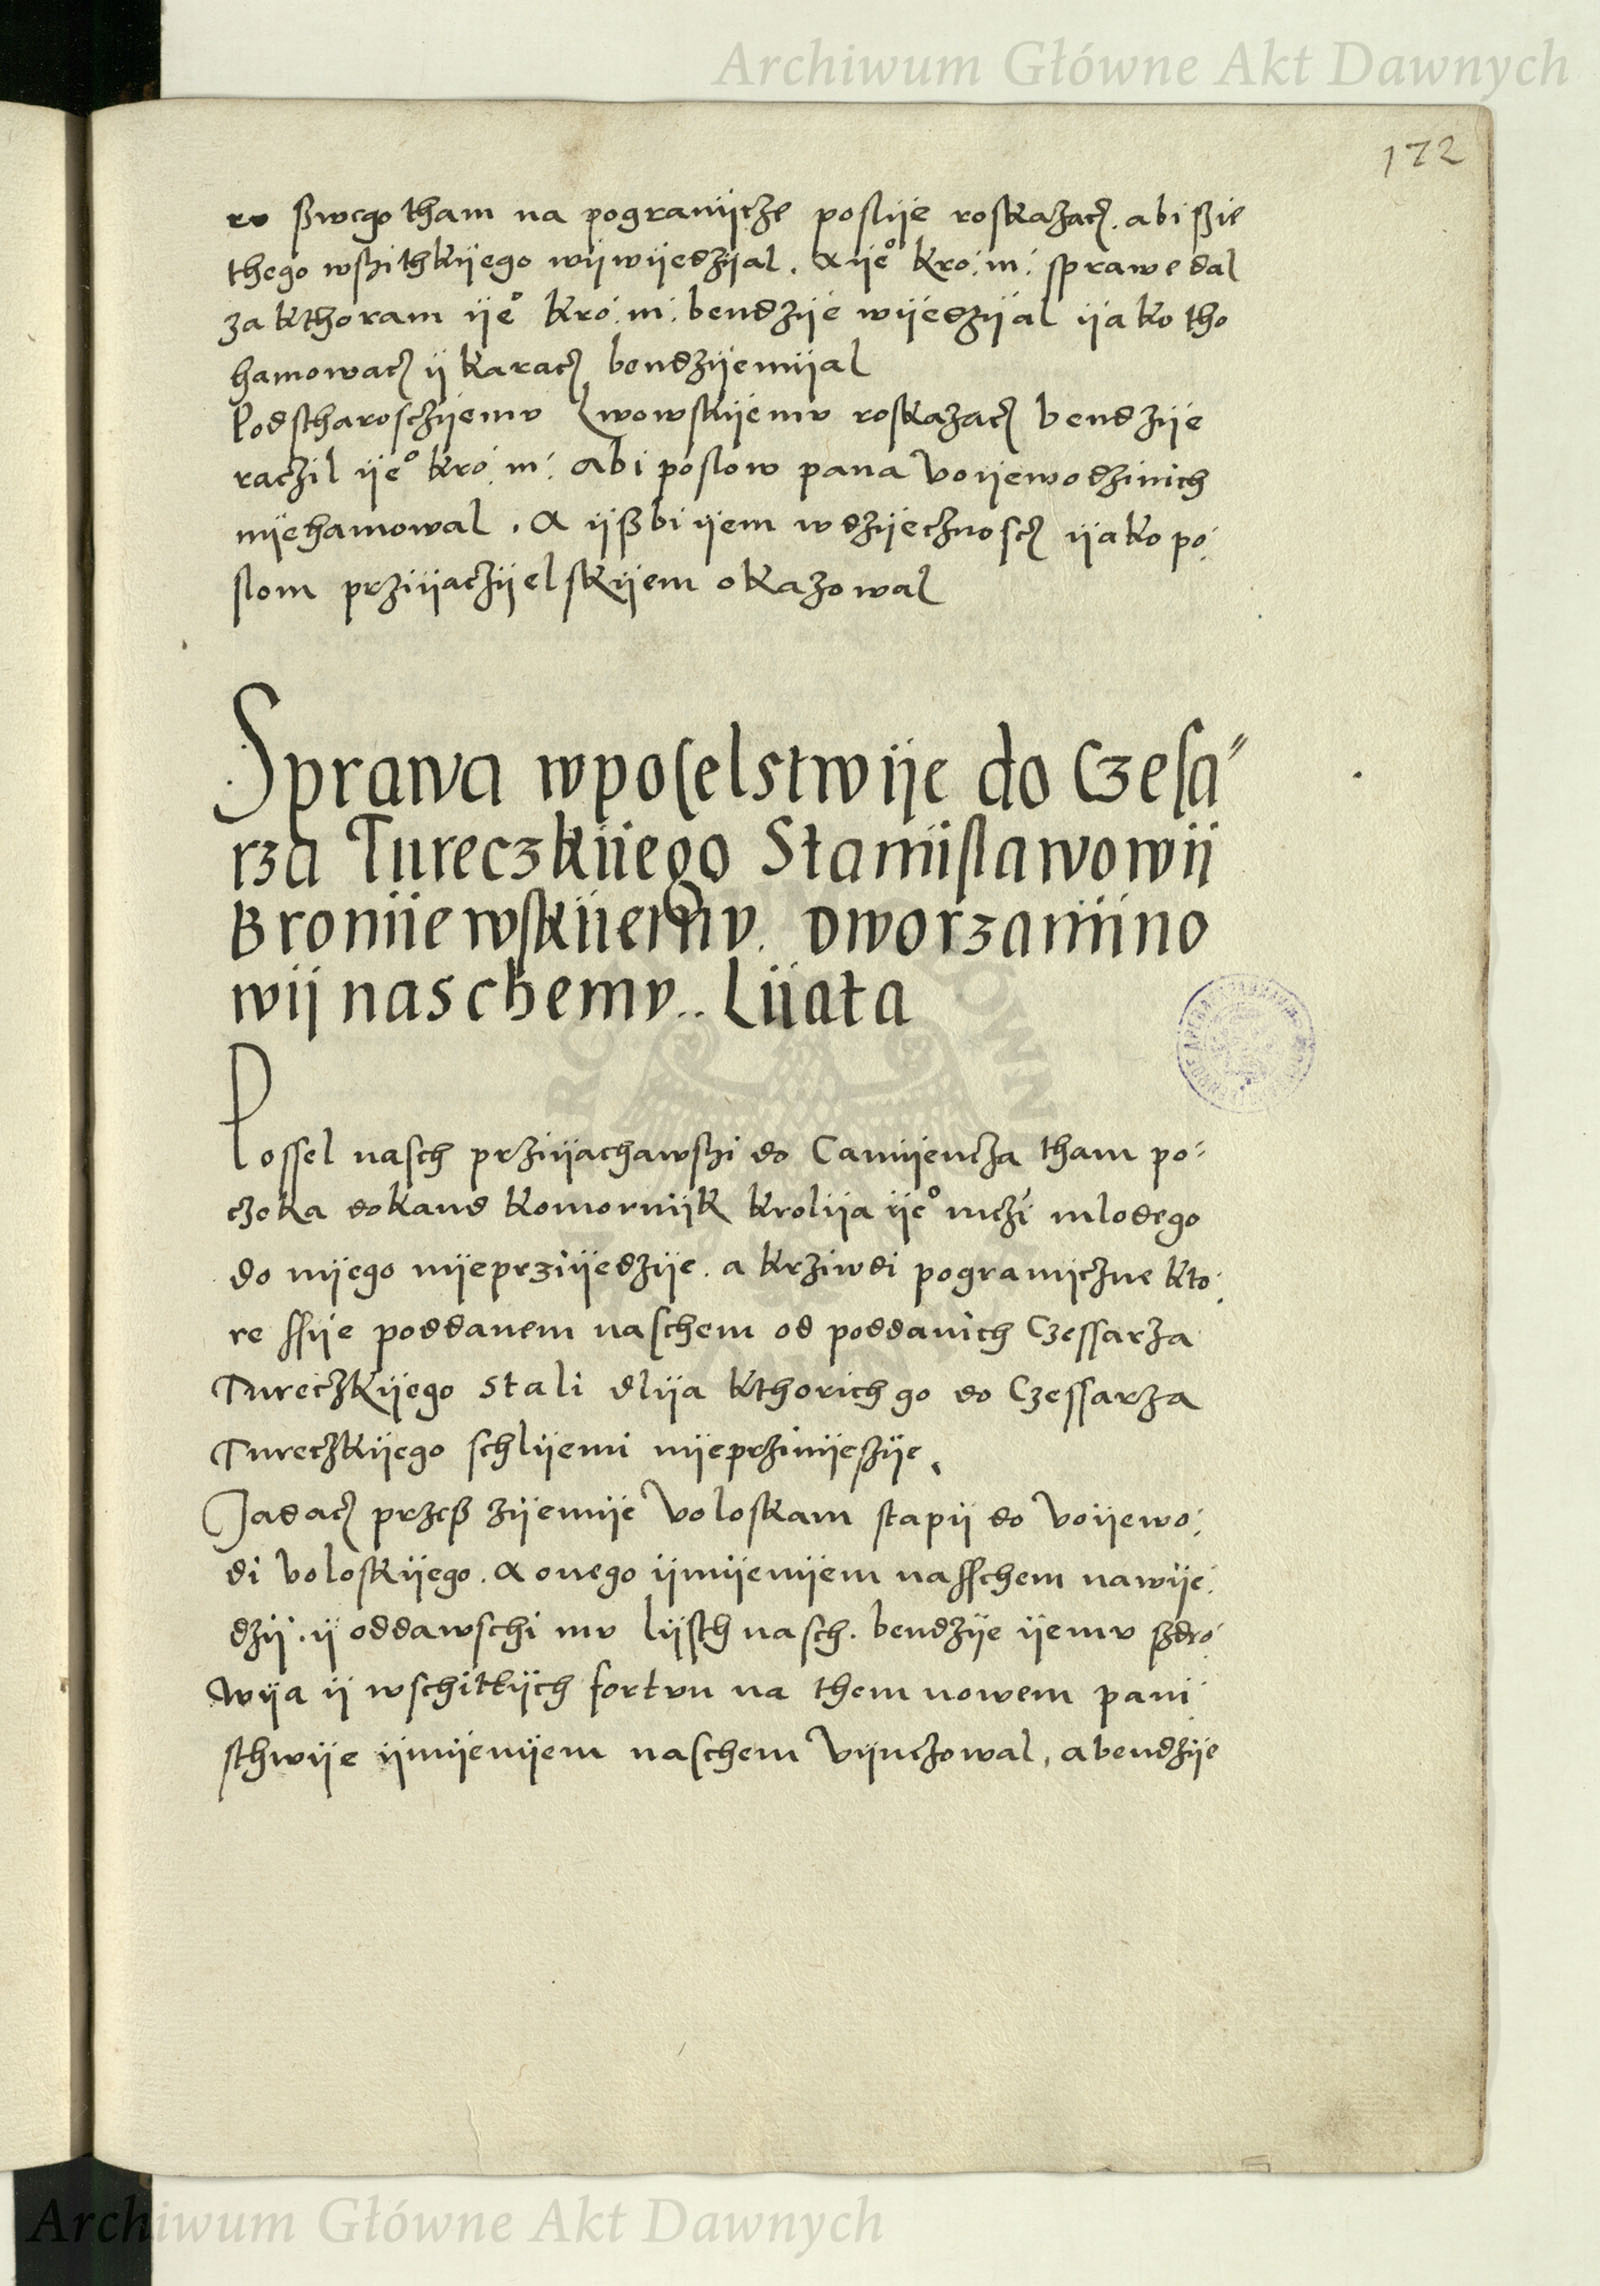 Archiwum Główne Akt Dawnych
172
rv ßwego tham na pogranijcze poslije roskazacz. abi ßie
thego wszithkijego wijwijedzijal. A ije° kro: m: sprawe dal
za kthoram ije° kro: m: bendzije wijedzijal ijako tho
hamowacz ij karacz bendzijemijal
Podstharosczijemv Lwowskijemv roskazacz bendzije
raczil ije° kro: m: Abi poslow pana Voijewodzinich
nijehamowal. A ijßbi ijem wdzijecznoscz ijako po:
slom prziijaczijelskijem okazowal
Sprawa wposelstwije do Czesa"
rza Tureczkijego Stanislawowij
Bronijewskijemv. Dworzanino
wij naschemv.. Lijata
Possel nasch prziijachawszi do Camijencza tham po:
czeka dokand komornijk krolija ije° mczi mlodego
do nijego nijeprziijedzije. a krziwdi pogranijczne kto:
re ssije poddanem naschem od poddanich Czessarza
Tureczkijego stali dlija kthorich go do Czessarza
Tureczkijego schlijemi nijeprzinijeszije.
Jadacz przeß zijemije Voloskam stapij do Voijewo:
di Voloskijego. A onego ijmijenijem nasschem nawije:
dzij. ij oddawschi mv lijsth nasch. bendzije ijemv szdro:
wija ij wschitkijch fortvn na them nowem pani:
sthwije ijmijenijem naschem Vijnczowal, a bendzije
Archiwum Główne Akt Dawnych